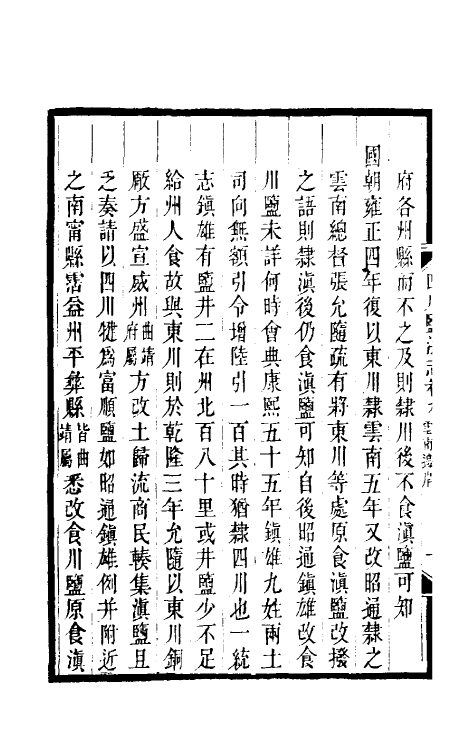 府各州縣而不之及則隸川後不食滇鹽可知
國朝雍正四年復以東川隸雲南五年又改昭通隸之
雲南總督張允隨疏有將東川等處原食滇鹽改撥
之語則隸滇後仍食滇鹽可知自後昭通鎮雄改食
川鹽未詳何時會典康熙五十五年鎮雄九姓兩土
司向無額引令增陸引一百其時猶隸四川也一統
志鎮雄有鹽井二在州北百八十里或井鹽少不足
給州人食故與東川則於乾隆三年允隨以東川銅
厰方盛宣威州曲靖府屬方改土歸流商民輳集滇鹽且
乏奏請以四川犍爲富順鹽如昭通鎮雄例并附近
之南甯縣霑益州平彝縣皆曲靖屬悉改食川鹽原食滇
四川鹽法志卷九